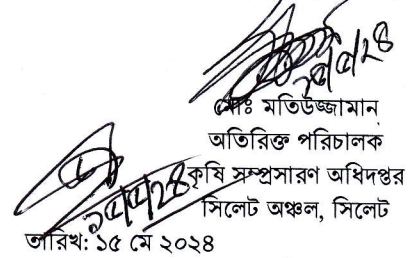 ১৫/৫/২৪
মোঃ মতিউজ্জামান
অতিরিক্ত পরিচালক
কৃষি সম্প্রসারণ অধিদপ্তর
সিলেট অঞ্চল, সিলেট
১৫/৫/২৪
তারিখ: ১৫ মে ২০২৪